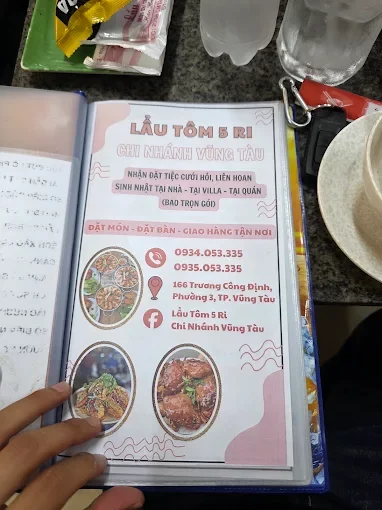 LẨU TÔM 5 RI
CHI NHÁNH VŨNG TÀU
NHẬN ĐẶT TIỆC CƯỚI HỎI, LIÊN HOAN
SINH NHẬT TẠI NHÀ - TẠI VILLA - TẠI QUÁN
(BAO TRỌN GÓI)
ĐẶT MÓN - ĐẶT BÀN - GIAO HÀNG TẬN NƠI
0934.053.335
0935.053.335
166 Trương Công Định,
Phường 3, TP. Vũng Tàu
Lẩu Tôm 5 Ri
Chi Nhánh Vũng Tàu